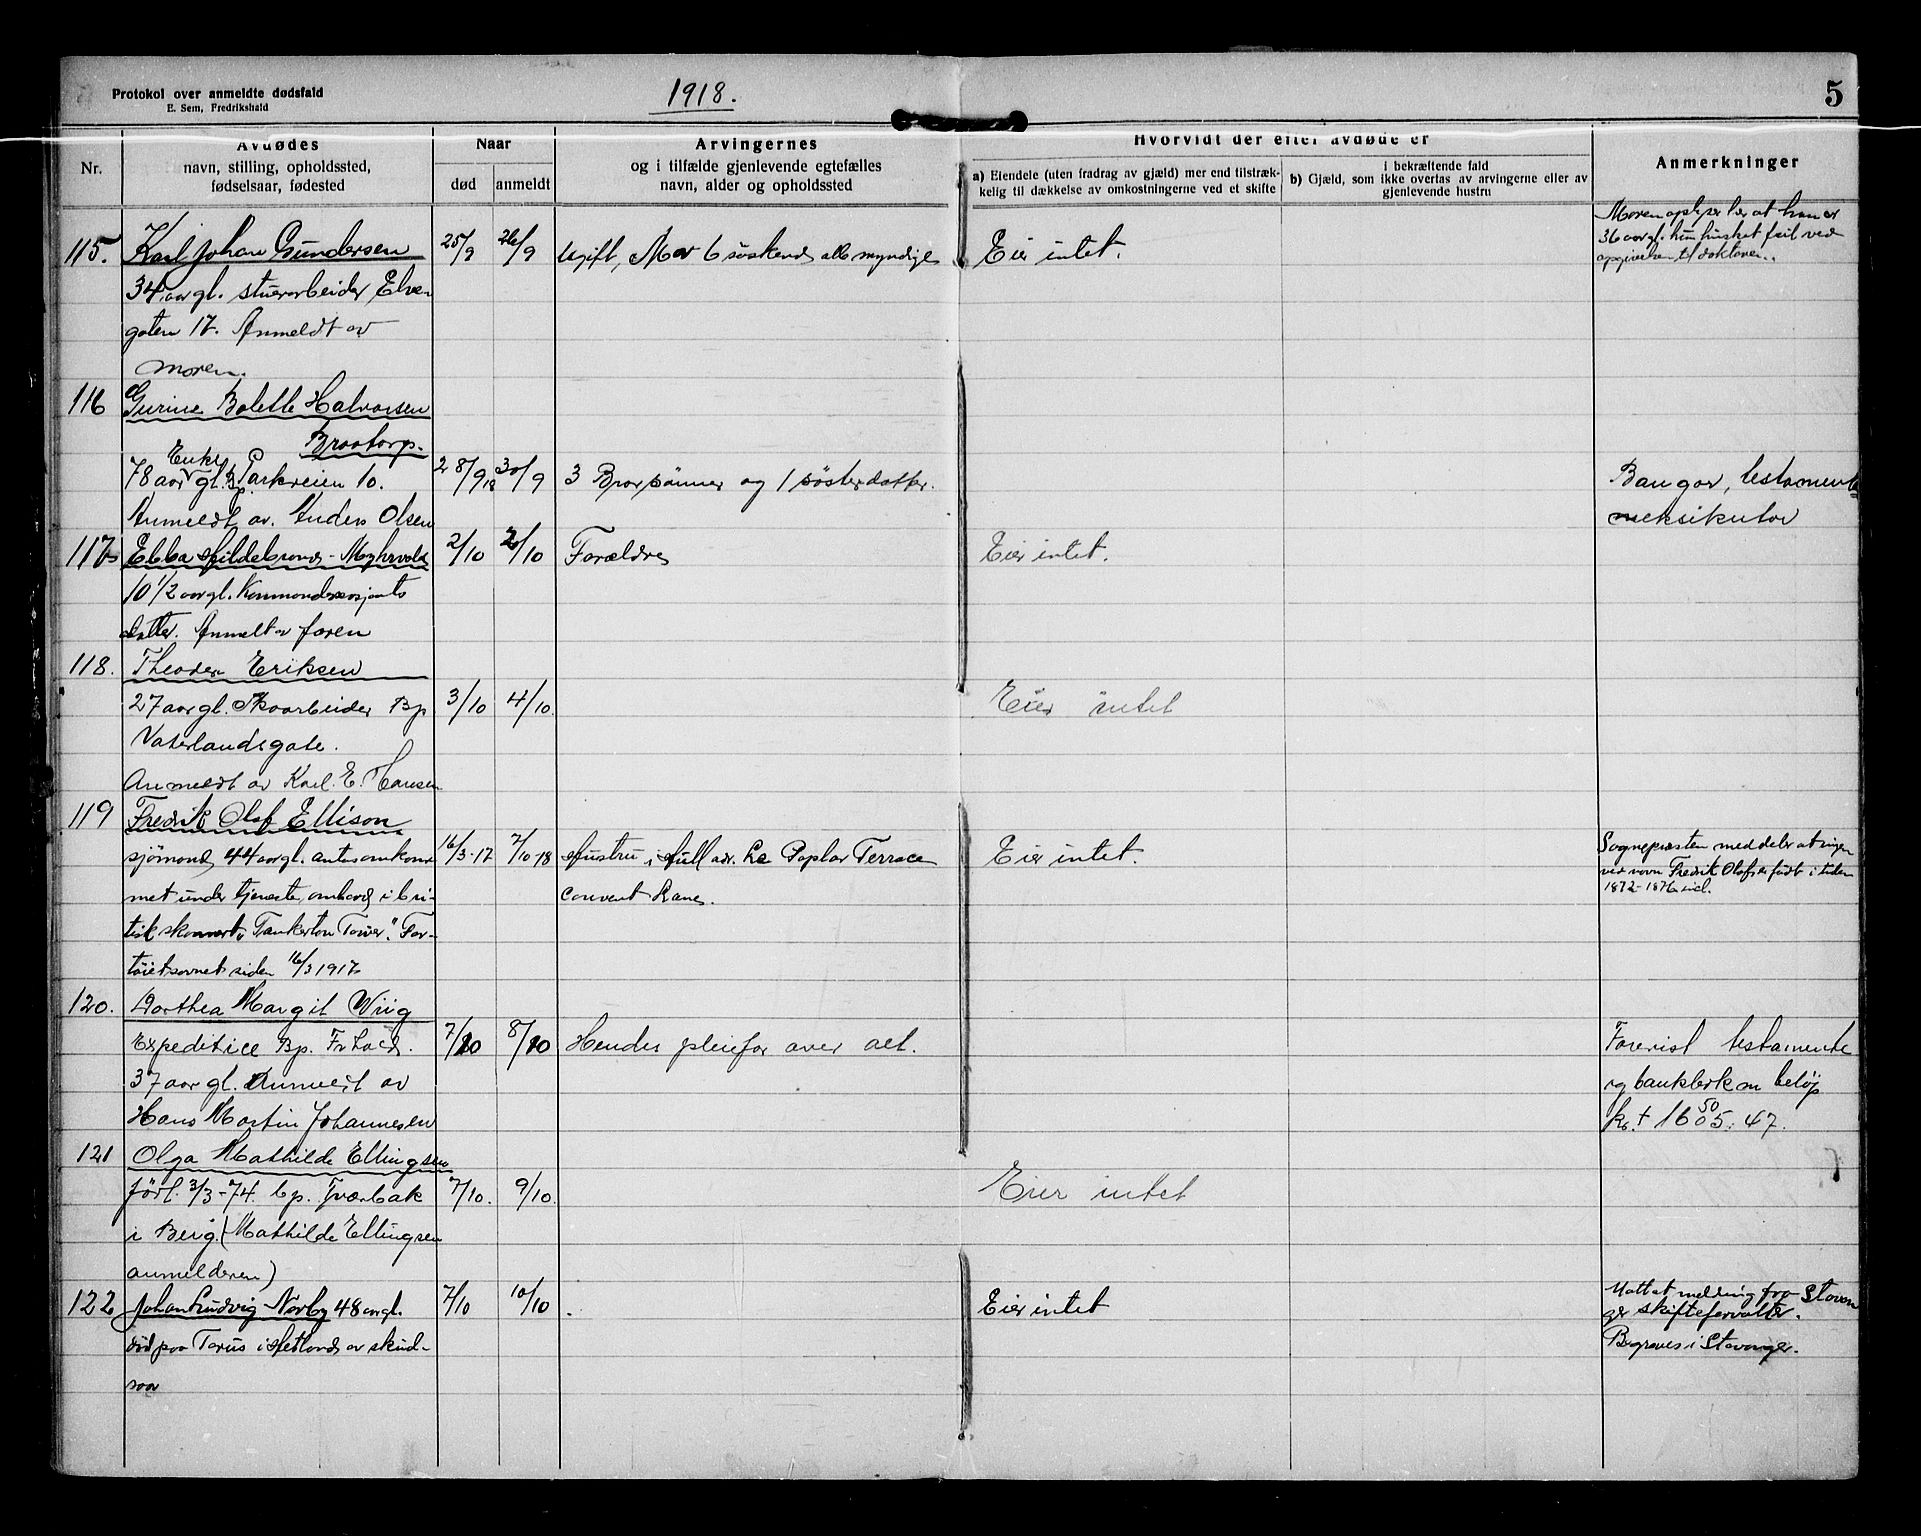 Protokol over anmeldte dødsfald
E. Sem, Fredrikshald
1918.
5
Nr.
Avdødes
navn, stilling, opholdssted,
fødselsaar, fødested
Naar
død
anmeldt
Arvingernes
og i tilfælde gjenlevende egtefælles
navn, alder og opholdssted
Hvorvidt der efter avdøde er
a) Eiendele (uten fradrag av gjæld) mer end tilstræk-
kelig til dækkelse av omkostningerne ved et skifte
i bekræftende fald
b) Gjæld, som ikke overtas av arvingerne eller av
gjenlevende hustru
Anmerkninger
115. Karl Johan Gundersen 25/9 26/9 Ugift, Mor 6 søskend alle myndige Eier intet.
34 aar gl. stuerarbeider Elve-
gaten 17. Anmeldt av
moren.
Moren oplyser her at han er
36 aar gl. hun husket feil ved
opgivelsen til doktoren.
116 Gurine Bolette Halvorsen
Braatorp.
Enke
78 aar gl. Bp. Parkveien 10. 28/9 18 30/9 3 Brorsønner og 1 søsterdatter. Bangor, testamente
Anmeldt av. Anders Olsen eksikutor
117 Ebba Hildebrand-Myhrvold 2/10 2/10 Forældre Eier intet.
10 1/2 aar gl. Kommandersersjants
datter. Anmelt av faren
118. Theodor Eriksen
27 aar gl. Skoarbeider Bp 3/10 4/10. Eier intet
Vaterlandsgate.
Anmeldt av Karl. E. Hansen
119 Fredrik Olaf Ellison
sjømand, 44 aar gl. antas omkom- 16/3-17 7/10-18 Hustru i Hull adr. Poplar Terrace Eier intet.
met under tjeneste ombord i bri- convent Lane.
tisk "Tankerton Tower". Far-
tøiet savnet siden 16/3 1917
Sognepresten meddeler at ingen
ved navn Fredrik Olaf er født i tiden
1872-1876 incl.
120. Dorthea Margit Wiig
Expeditrice Bp. Frhald. 7/10 8/10 Hendes pleiefar over alt. Forevist testamente
37 aar gl. Anmeldt av og bankbok m beløp
Hans Martin Johannesen kr. 1605:47.
50
121 Olga Mathilde Ellingsen
født. 3/3-74. bp. Tværbak 7/10. 9/10. Eier intet
i Berg. (Mathilde Ellingsen
anmelderen)
122 Johan Ludvig Norby 48 aar gl. 7/10 10/10 . Eier intet
død paa Torus i Hetland av skud-
saar
Mottat melding fra Stavan-
ger skifteforvalter.
Begraves i Stavanger.